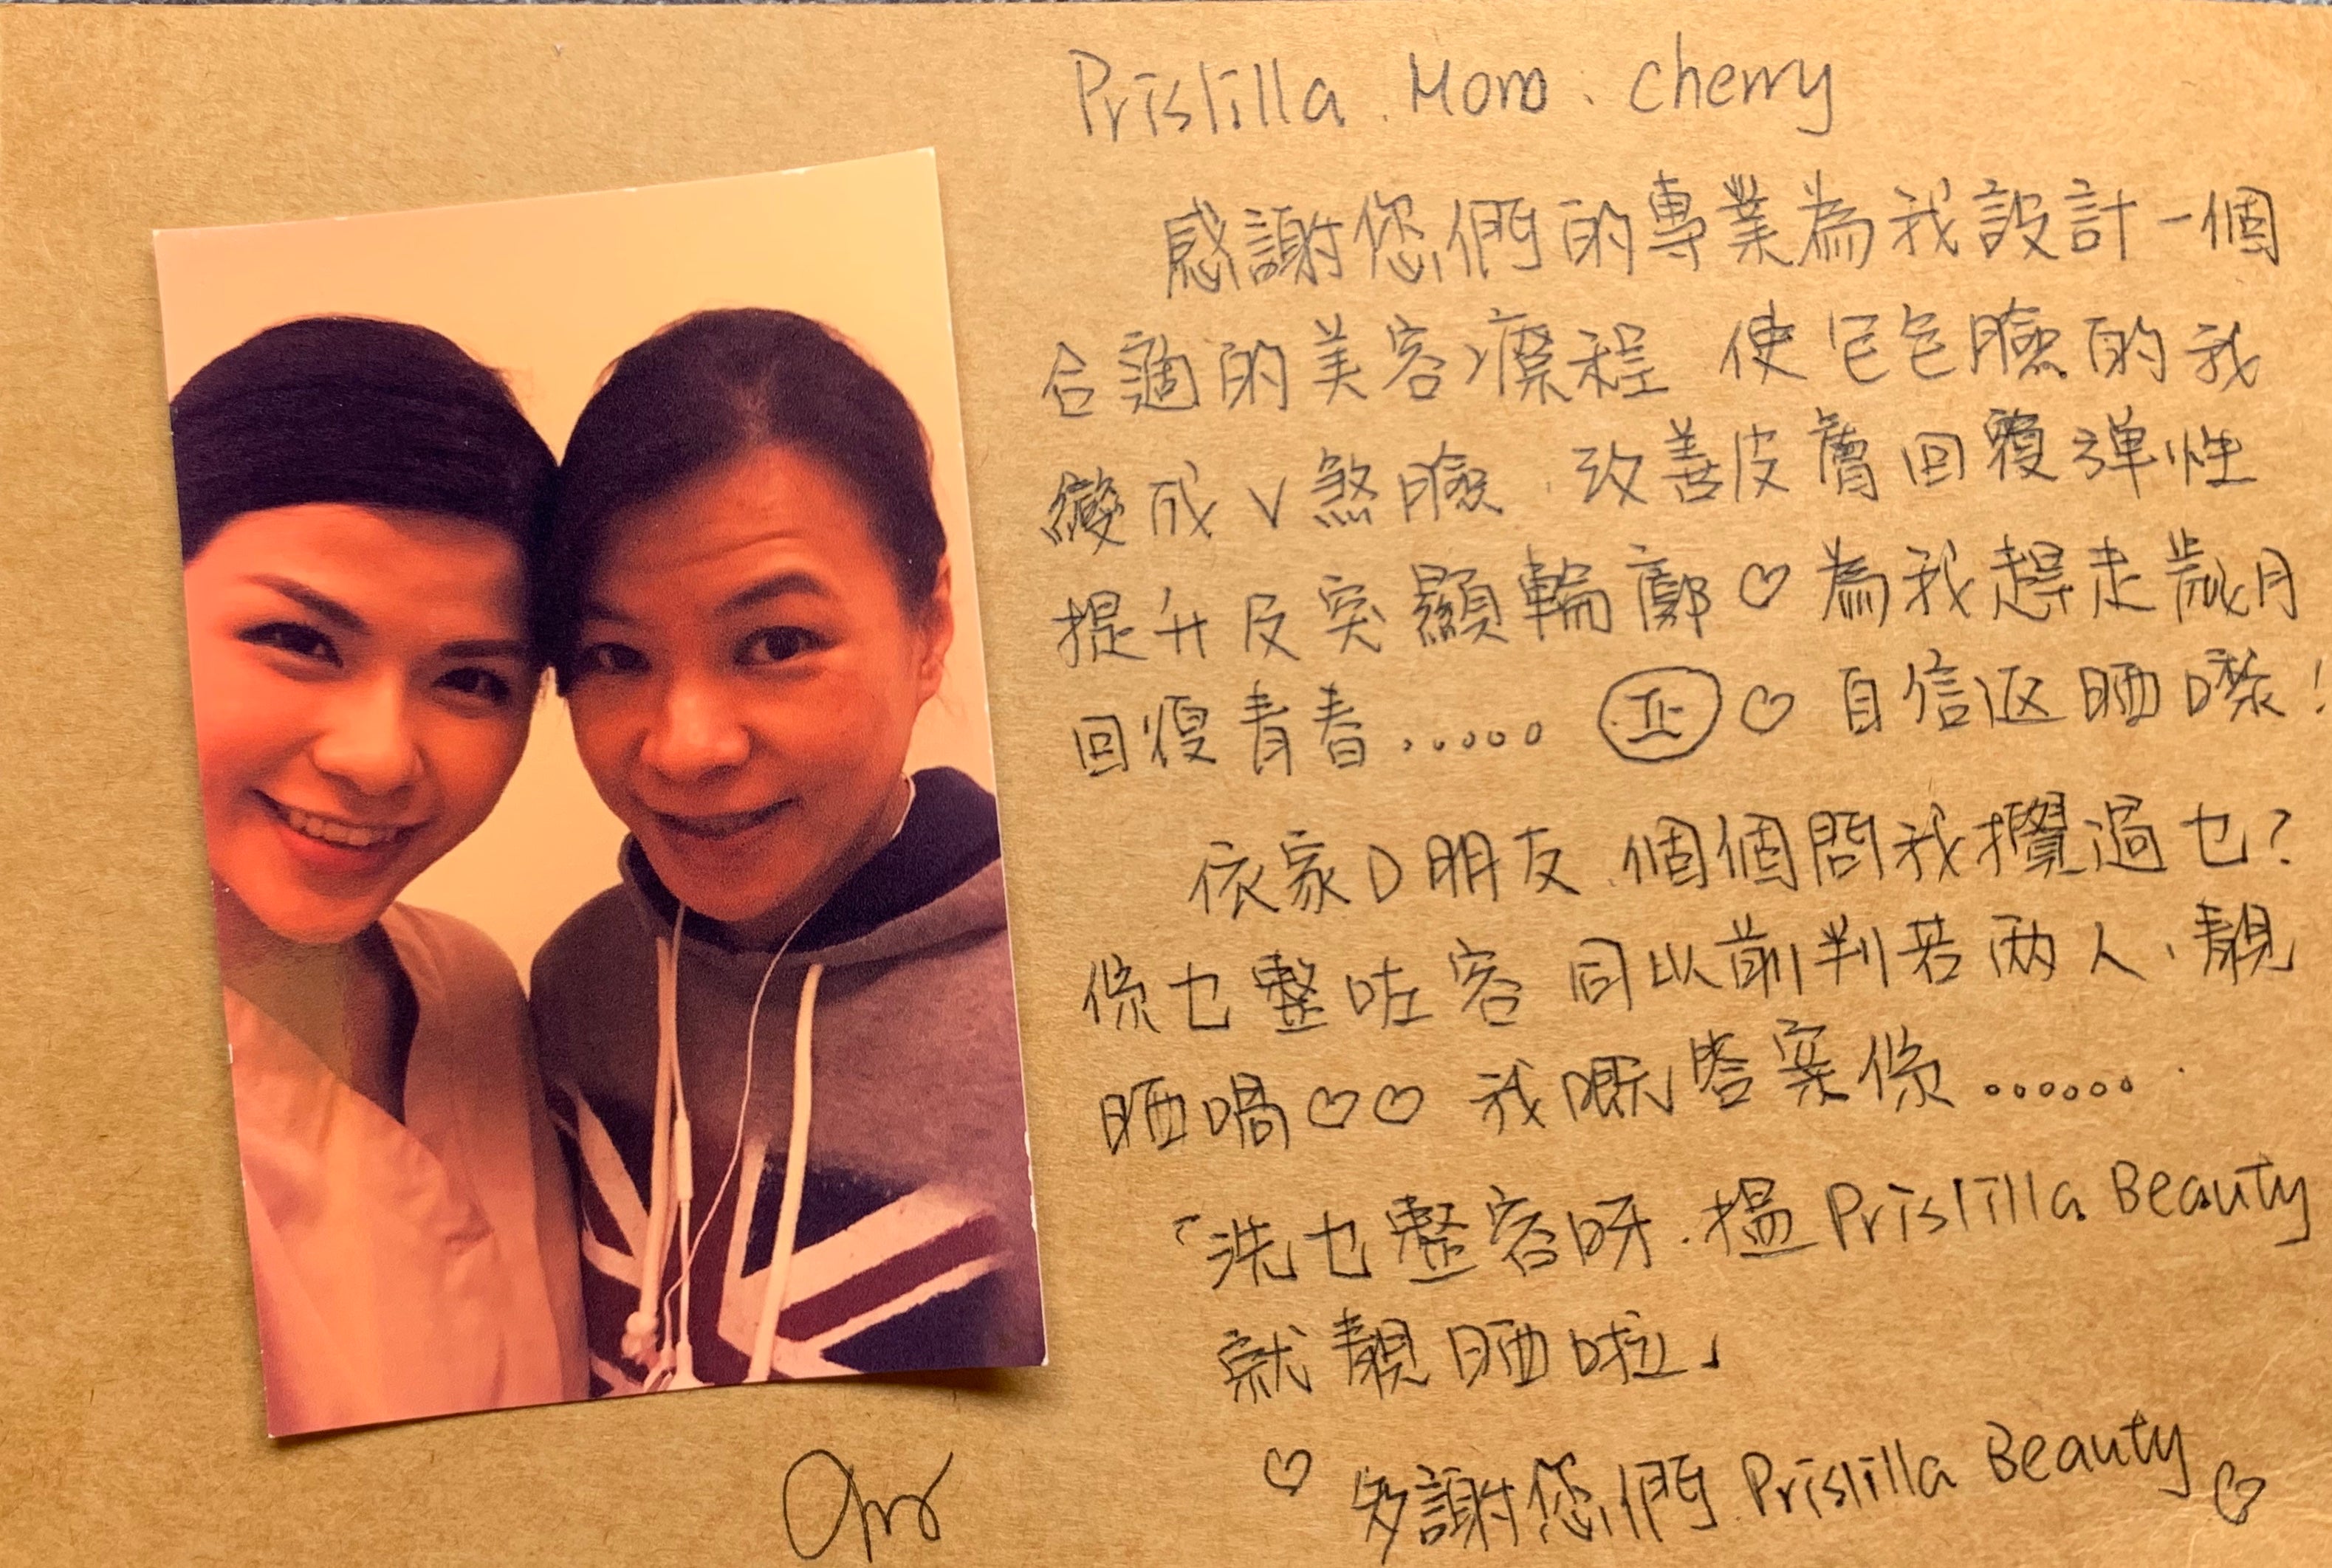 Prislilla. Momo. Cherry
感謝您們的專業為我設計一個
合適的美容療程 使包包臉的我
變成V煞臉. 改善皮膚回覆彈性
提升及突顯輪廓♡為我趕走歲月
回復青春...... 正♡自信返晒嚟!
依家D朋友.個個問我攪過乜?
係乜整咗容 同以前判若兩人、靚
晒喎♡♡ 我嘅答案係......
「洗乜整容呀.搵Prislilla Beauty
就靚晒啦」
♡ 多謝您們 Prislilla Beauty ♡